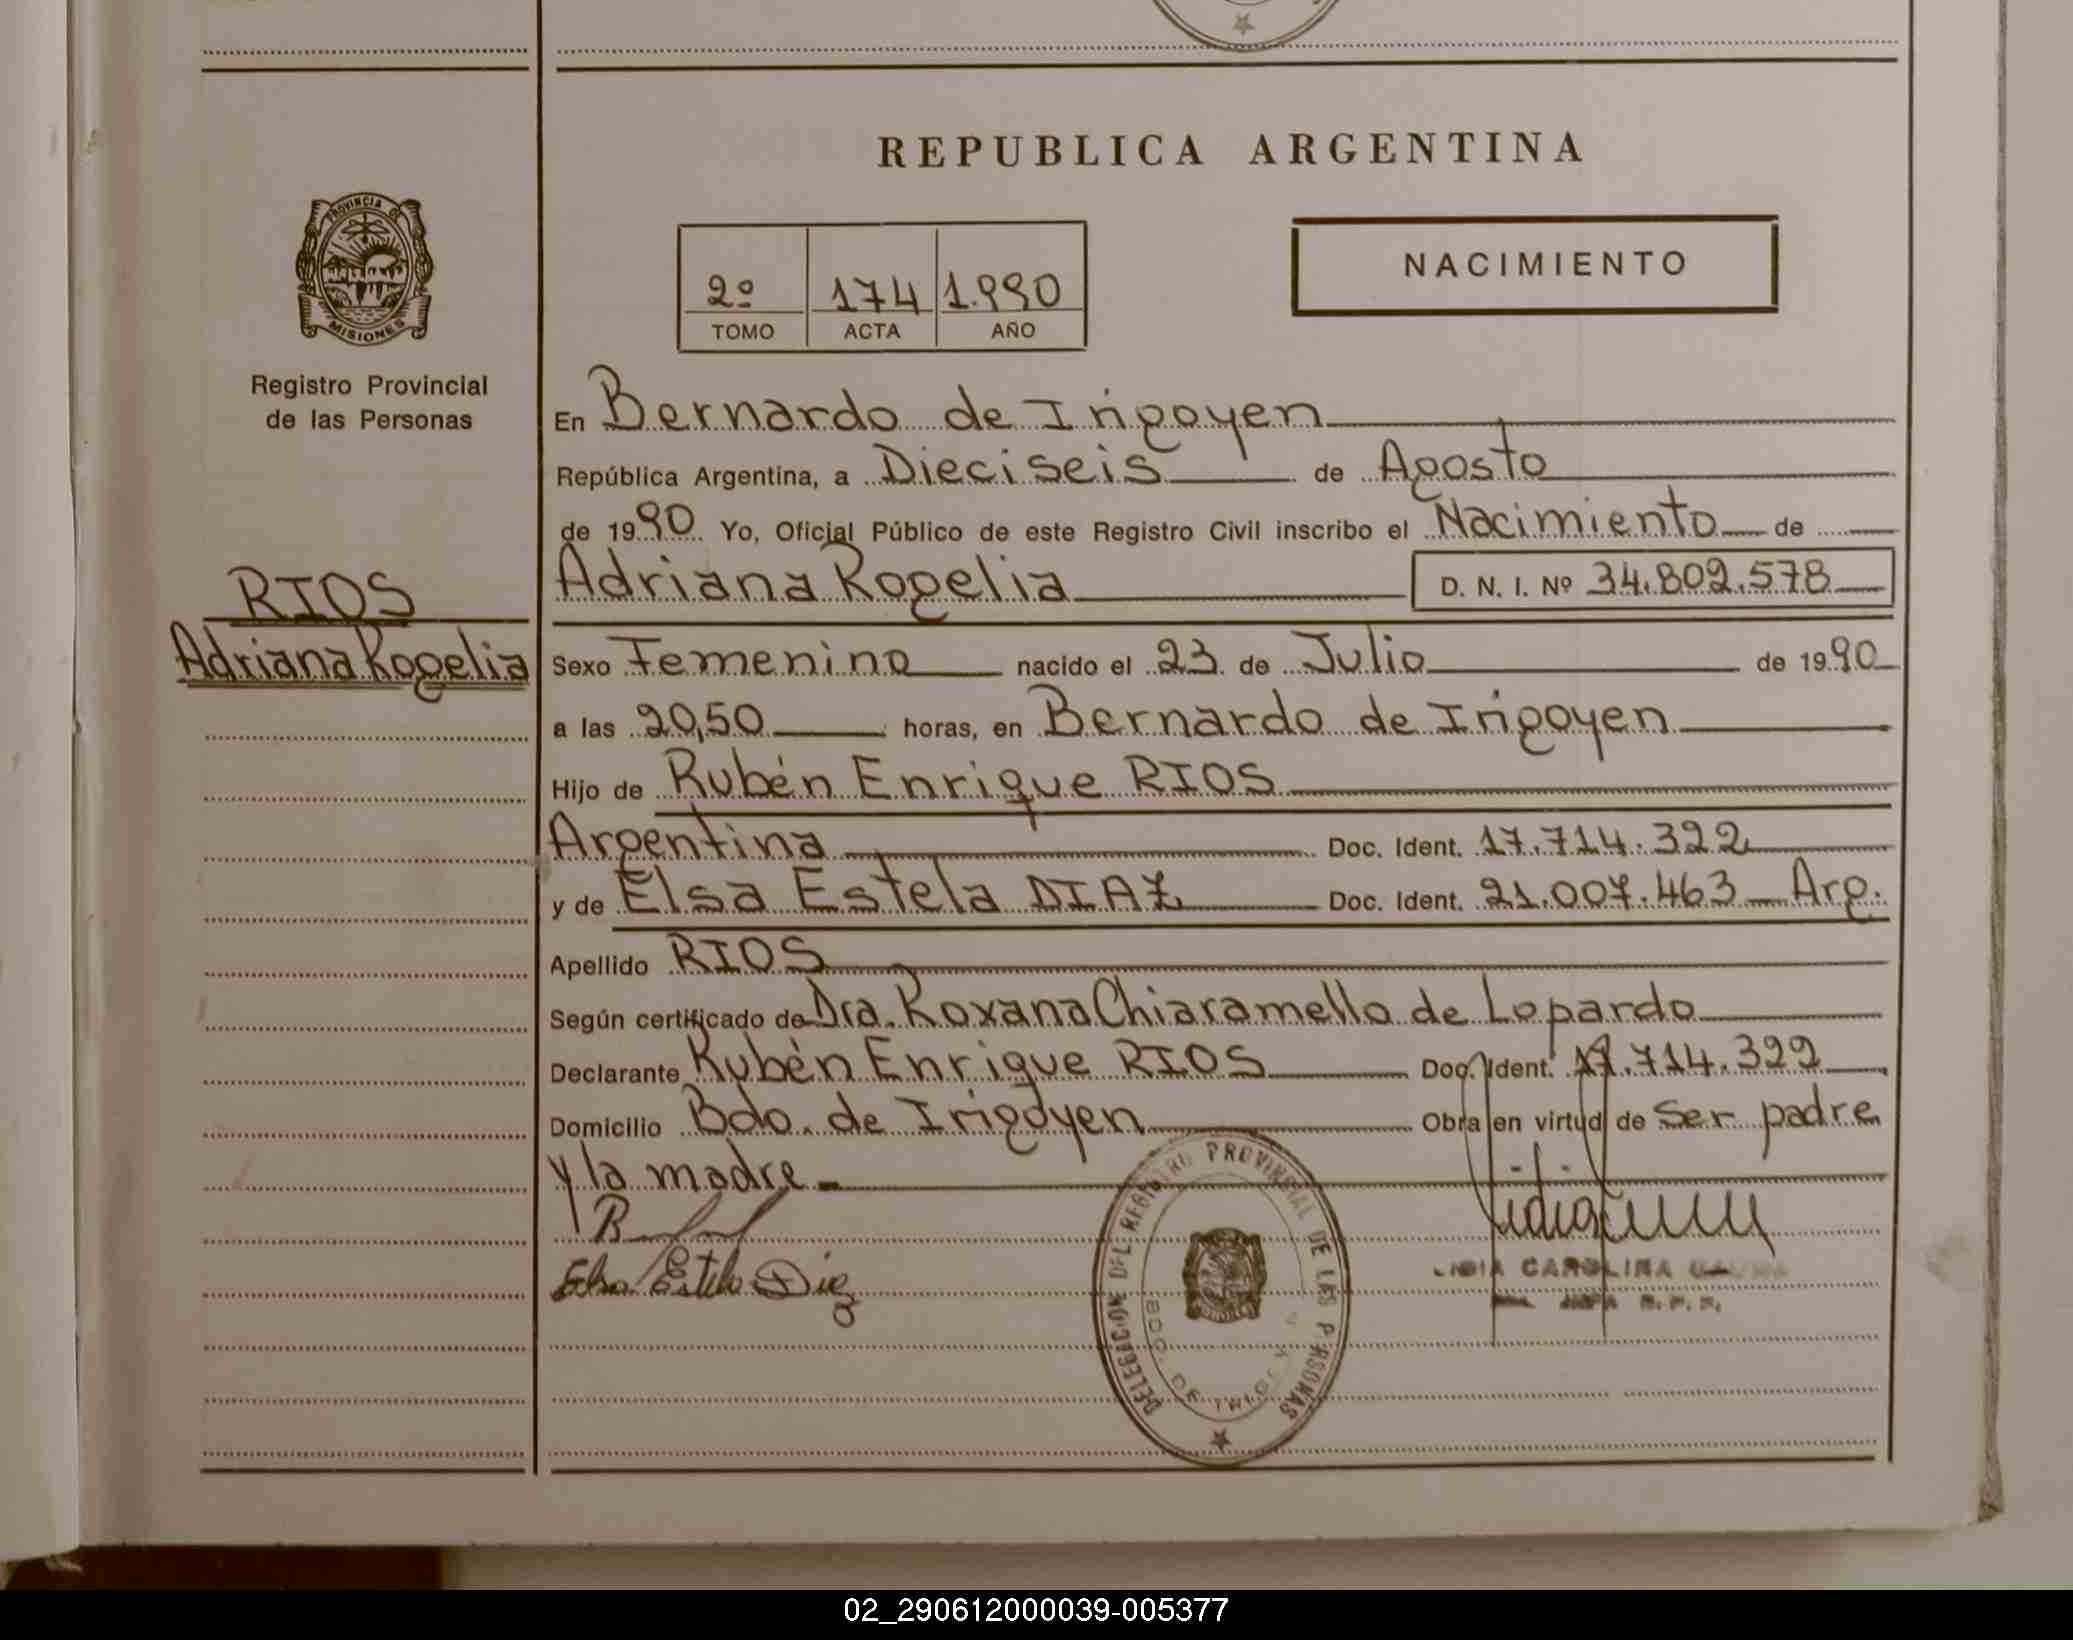 REPUBLICA ARGENTINA
PROVINCIA DE
MISIONES
Registro Provincial
de las Personas
2º 174 1.990
TOMO ACTA AÑO
NACIMIENTO
RIOS
Adriana Rogelia
En Bernardo de Irigoyen
República Argentina, a Dieciseis de Agosto
de 1990 Yo, Oficial Público de este Registro Civil inscribo el Nacimiento de
Adriana Rogelia D. N. I. Nº 34.802.578
Sexo Femenino nacido el 23 de Julio de 1990
a las 20,50 horas, en Bernardo de Irigoyen
Hijo de Rubén Enrique RIOS
Argentina Doc. Ident. 17.714.322
y de Elsa Estela DIAZ Doc. Ident. 21.007.463 Arg.
Apellido RIOS
Según certificado de Dra. Roxana Chiaramello de Lopardo
Declarante Rubén Enrique RIOS Doc. Ident. 17.714.322
Domicilio Bdo. de Irigoyen Obra en virtud de Ser padre
y la madre
Elsa Estela Diaz
DELEGACION DEL REGISTRO PROVINCIAL DE LAS PERSONAS
BDO. DE IRIGOYEN
LIDIA CAROLINA
02_290612000039-005377